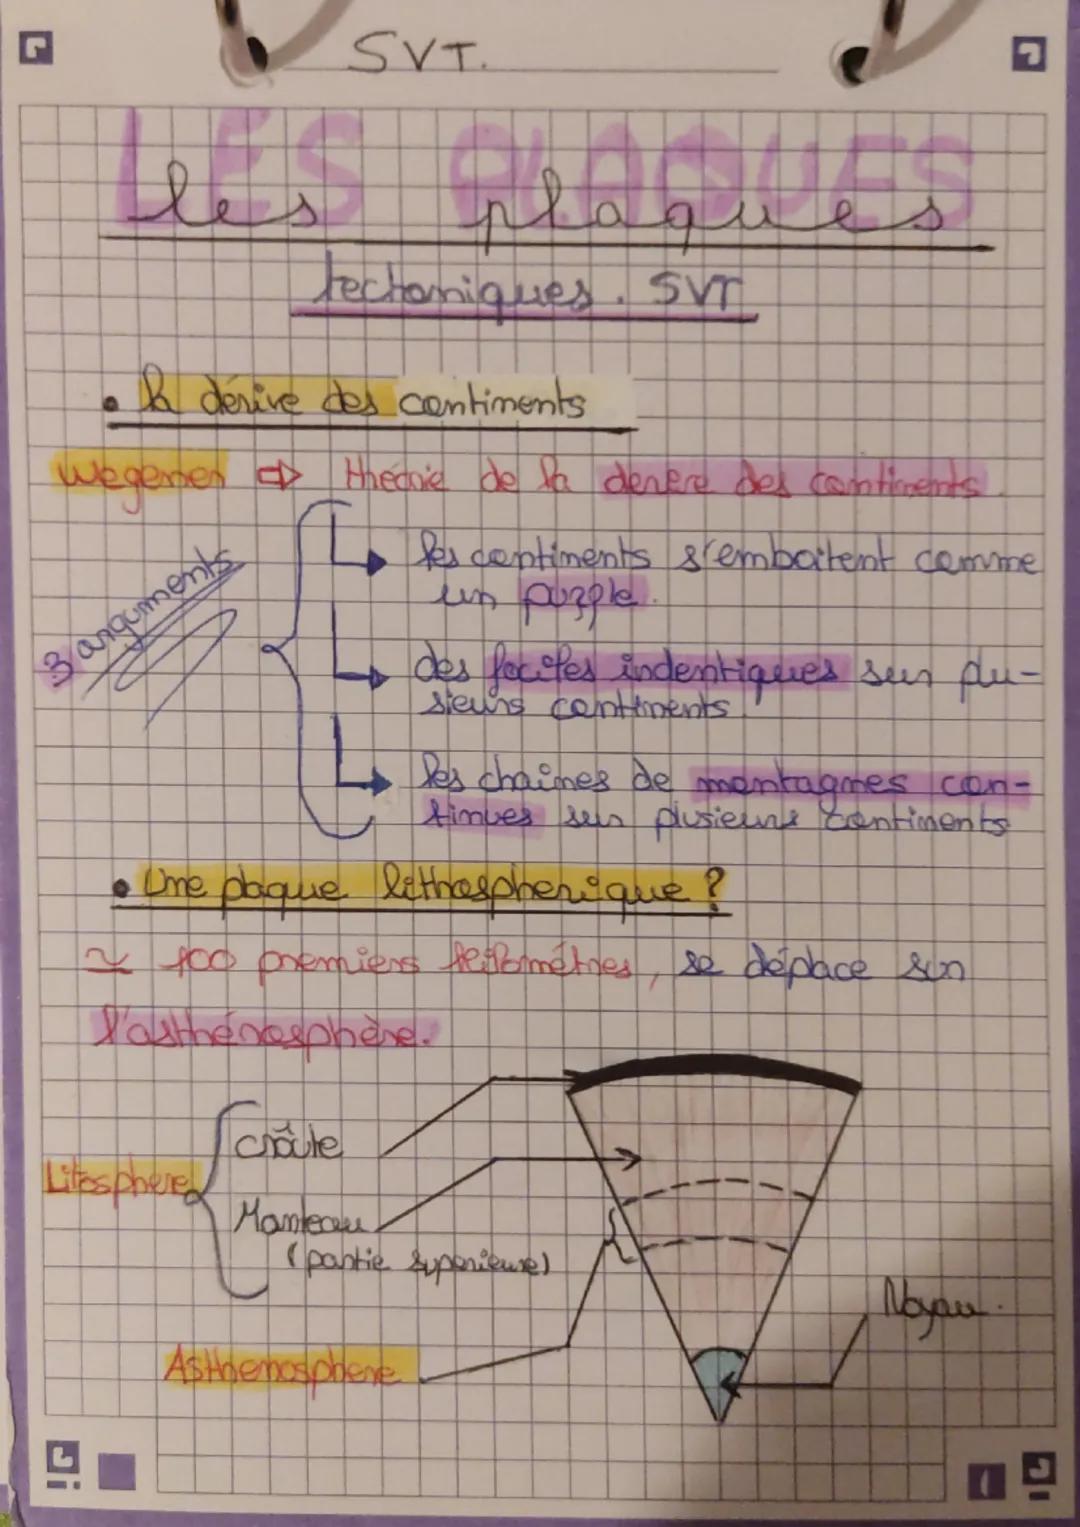 SVT.
LES PLAQUES
les plaques
tectoniques. SVT
• la dérive des continents
Wegener ⇨ théorie de la derere des continents.
3 arguments
les continents s'emboitent comme
un puzzle.
des focilles indentiques sur plu-
sieurs continents
les chaînes de montagnes con-
tinues sur plusieurs continents
• Une plaque lithospherique ?
≃ 100 premiers kilomètres, se déplace sur
l'asthénosphère.
Litosphere
Croûte
Manteau
(partie superieure)
Noyau.
Asthenosphere